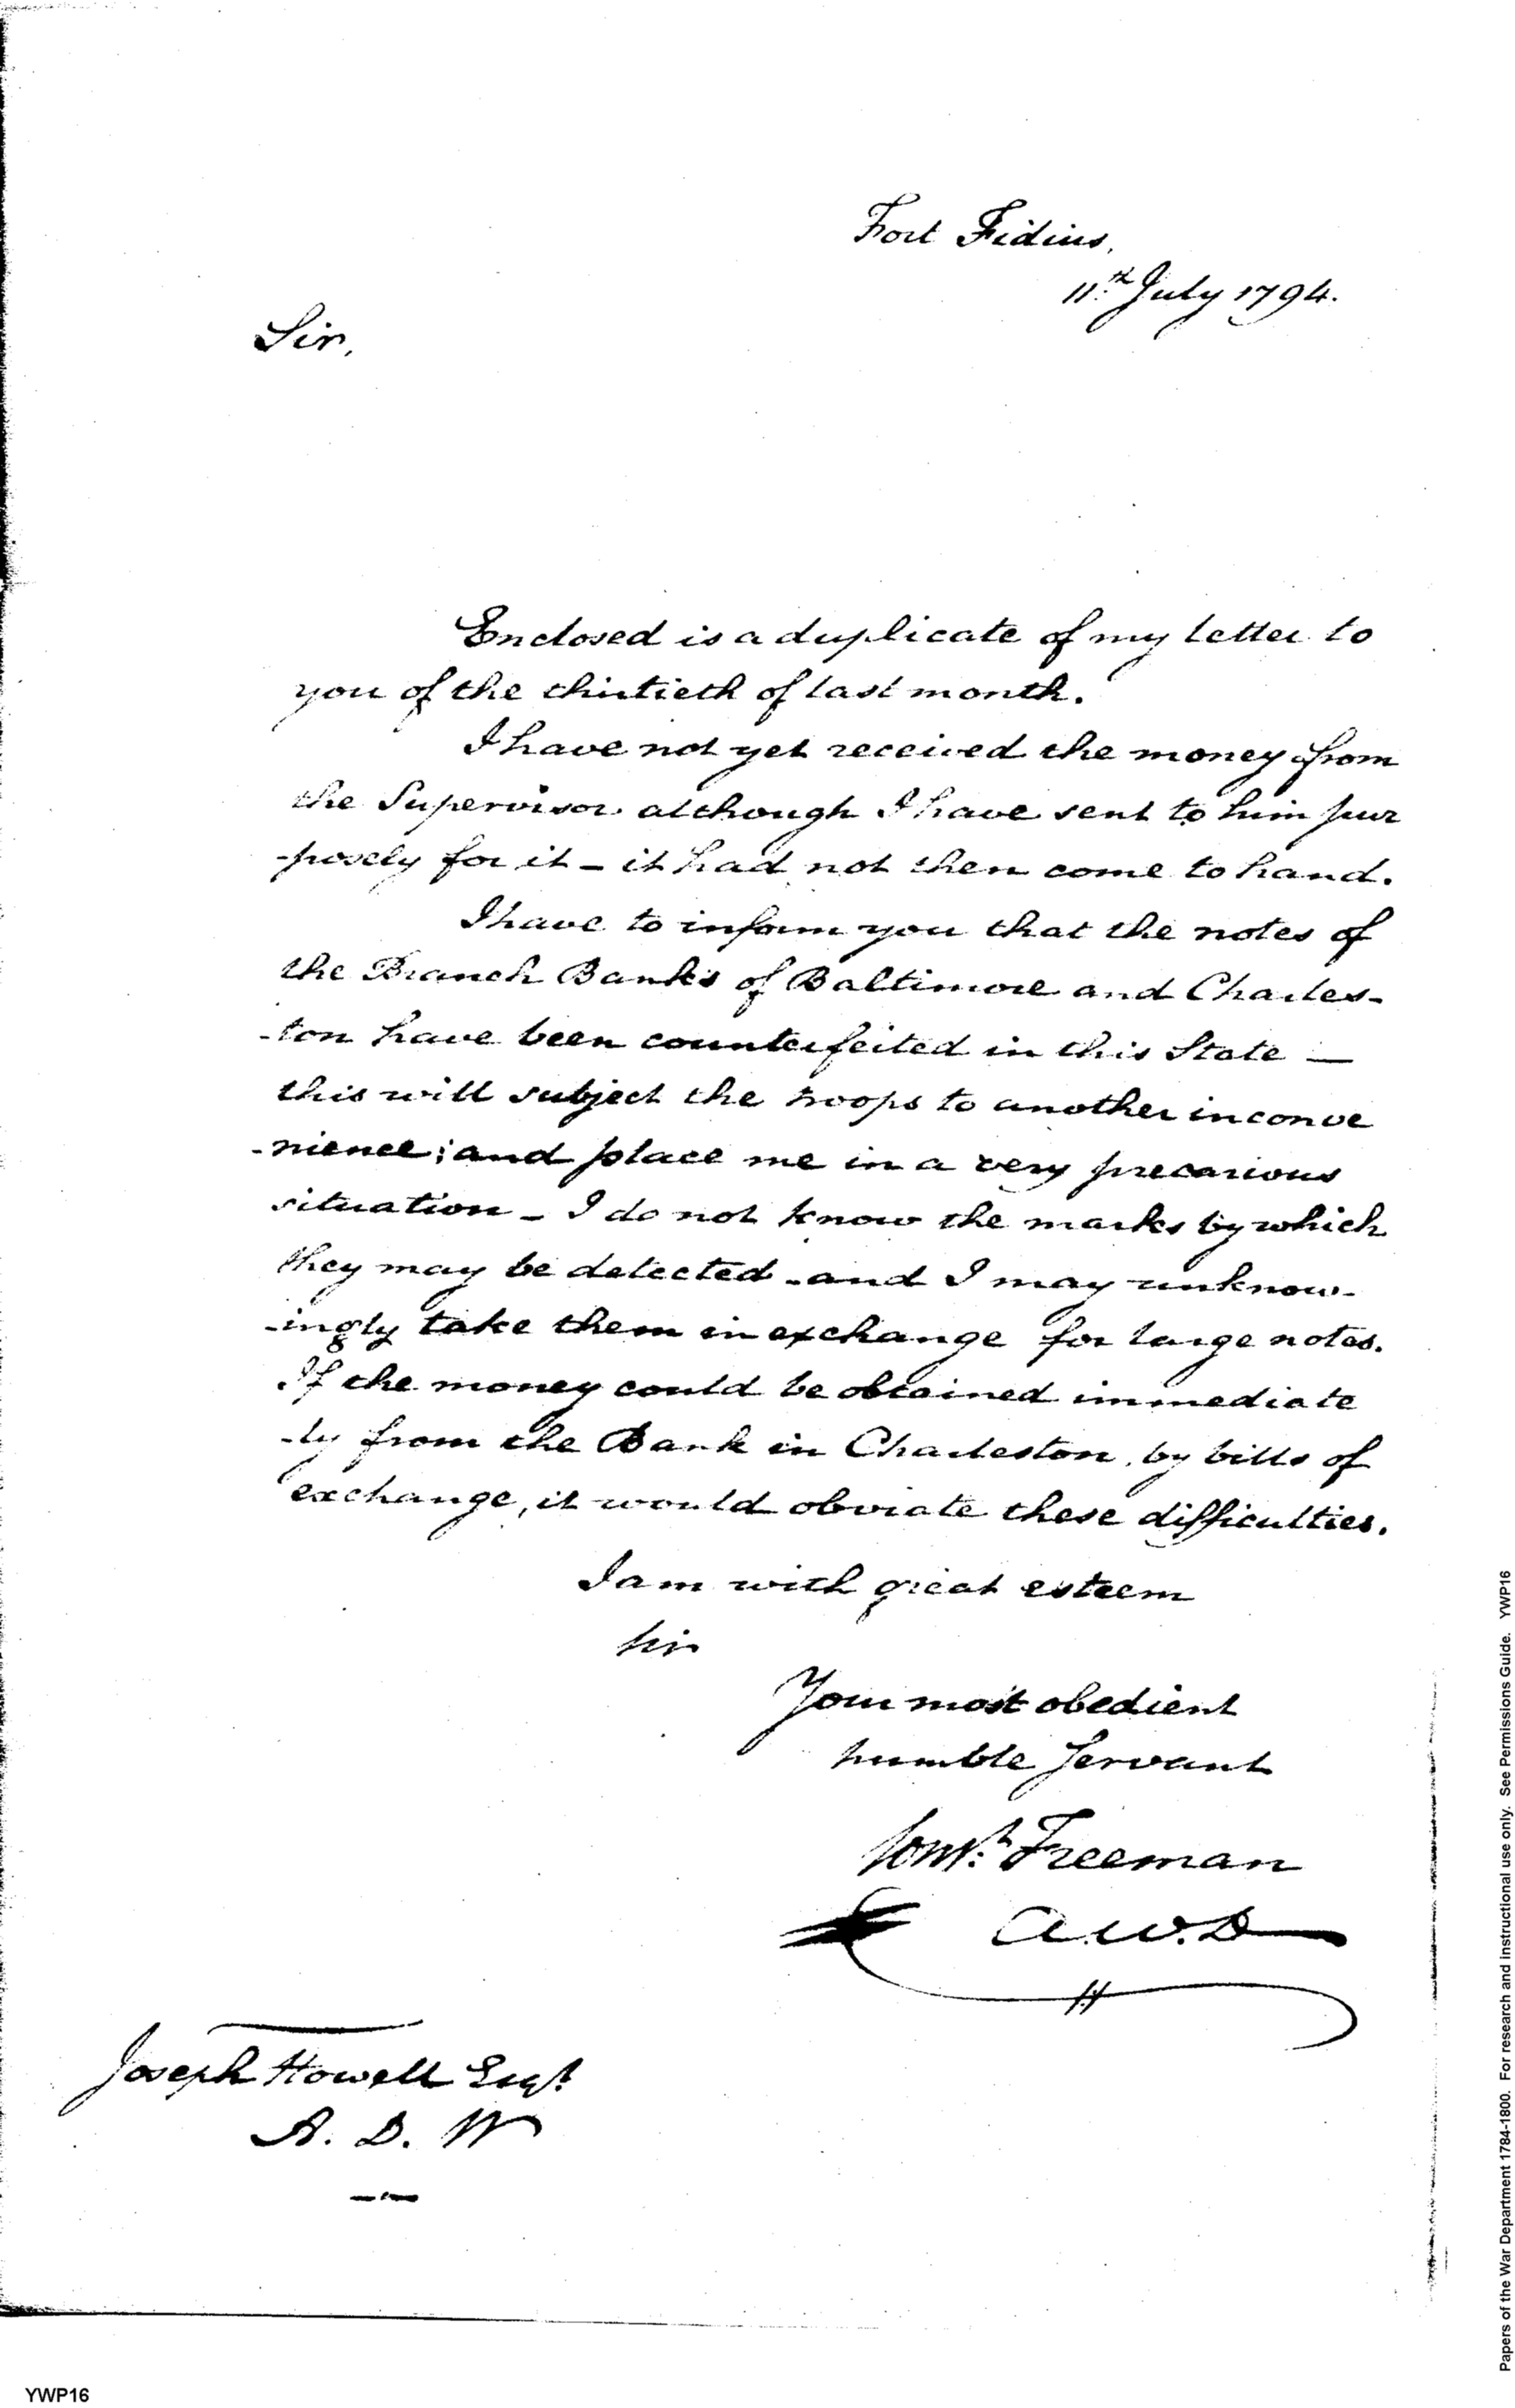 Fort Fidius,
11th July 1794.
Sir,
Enclosed is a duplicate of my letter to
you of the thirtieth of last month.
I have not yet received the money from
the Supervisor although I have sent to him pur
-posely for it – it had not then come to hand.
I have to inform you that the notes of
the Branch Banks of Baltimore and Charles-
-ton have been counterfeited in this State —
this will subject the troops to another inconve
-nience; and place me in a very precarious
situation – I do not know the marks by which
they may be detected – and I may unknow-
-ingly take them in exchange for large notes.
If the money could be obtained immediate
-ly from the Bank in Charleston, by bills of
exchange, it would obviate these difficulties.
I am with great esteem
Sir
Your most obedient
humble Servant
Const. Freeman
A.W.D
Joseph Howell Esqr.
A. D. W
Papers of the War Department 1784-1800. For research and instructional use only. See Permissions Guide. YWP16
YWP16